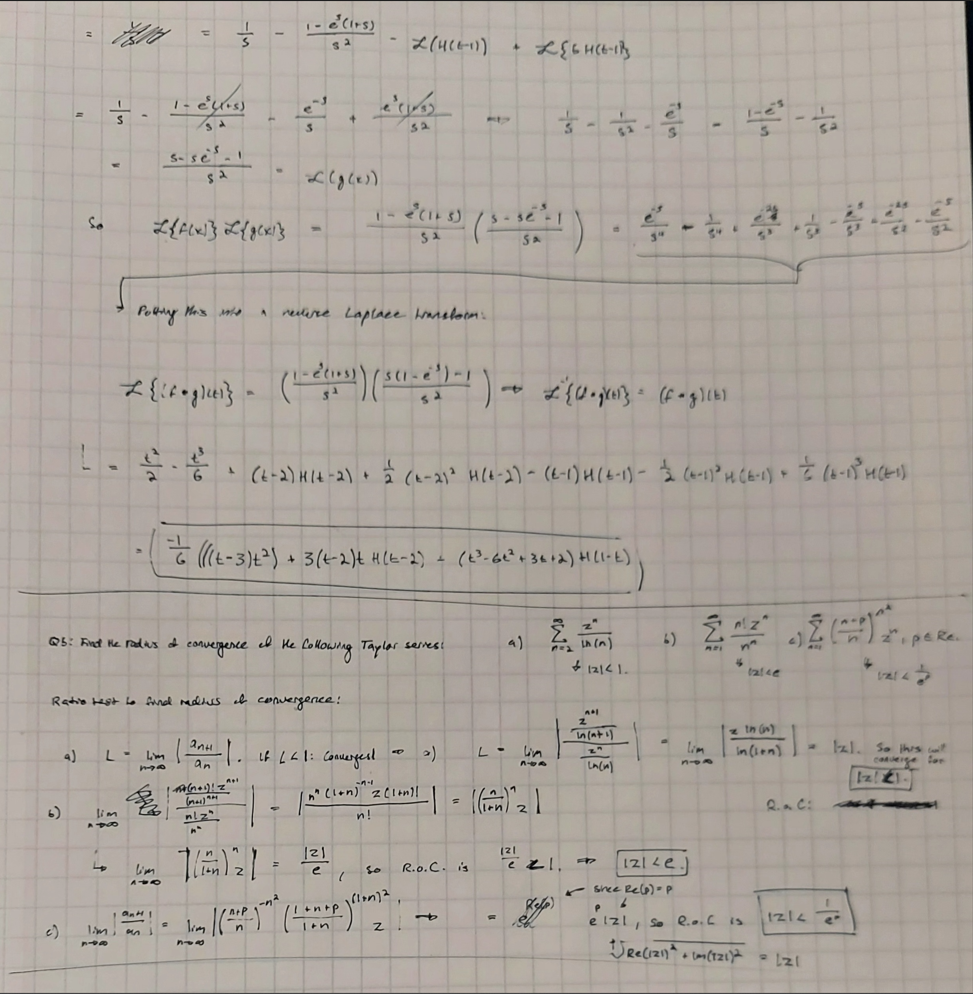 = = 1/s - (1 - e^s(1+s))/s² - ℒ(H(t-1)) + ℒ{tH(t-1)}
= 1/s - (1 - e^s(1+s))/s² - e^-s/s + e^s(1+s)/s² ⟹ 1/s - 1/s² - e^-s/s = (1-e^-s)/s - 1/s²
= (s - se^-s - 1)/s² = ℒ(g(t))
So ℒ{f(x)} ℒ{g(x)} = (1 - e^s(1+s))/s² ((s - se^-s - 1)/s²) = e^-s/s⁴ - 1/s⁴ + e^-2s/s³ + 1/s³ - e^-s/s³ + e^-2s/s² - e^-s/s²
Putting this into a reverse Laplace transform:
ℒ{(f*g)(t)} = ((1-e^s(1+s))/s²)((s(1-e^-s)-1)/s²) ⟹ ℒ^-1{(f*g)(t)} = (f*g)(t)
L = t²/2 - t³/6 + (t-2)H(t-2) + 1/2 (t-2)² H(t-2) - (t-1)H(t-1) - 1/2 (t-1)² H(t-1) + 1/6 (t-1)³ H(t-1)
= -1/6 (((t-3)t²) + 3(t-2)t H(t-2) + (t³-6t²+3t+2)H(1-t))
Q5: Find the radius of convergence of the following Taylor series: a) ∑_{n=2}^∞ z^n/ln(n) b) ∑_{n=1}^∞ n!z^n/n^n c) ∑_{n=1}^∞ ((n+p)/n)^{n²} z^n, p ∈ Re.
↳ |z|<1. ↳ |z|<e ↳ |z| < 1/e^p
Ratio test to find radius of convergence:
a) L = lim_{n→∞} |a_{n+1}/a_n|. if L<1: Converges! ⟹ a) L = lim_{n→∞} |(z^{n+1}/ln(n+1))/(z^n/ln(n))| = lim_{n→∞} |z ln(n)/ln(1+n)| = |z|. So this will converge for |z|<1.
R.o.C:
b) lim_{n→∞} |((n+1)! z^{n+1}/(n+1)^{n+1})/(n!z^n/n^n)| = |n^n (1+n)^{-n-1} z(1+n)!/n!| = |(n/(1+n))^n z|
↳ lim_{n→∞} |(n/(1+n))^n z| = |z|/e, so R.o.C. is |z|/e < 1. ⟹ |z|<e.
c) lim_{n→∞} |a_{n+1}/a_n| = lim_{n→∞} |((n+p)/n)^{-n²} ((1+n+p)/(1+n))^{(1+n)²} z| → = e^p|z|, so R.o.C is |z| < 1/e^p
← since Re(p)=p
↑ √(Re(|z|)² + Im(|z|)²) = |z|